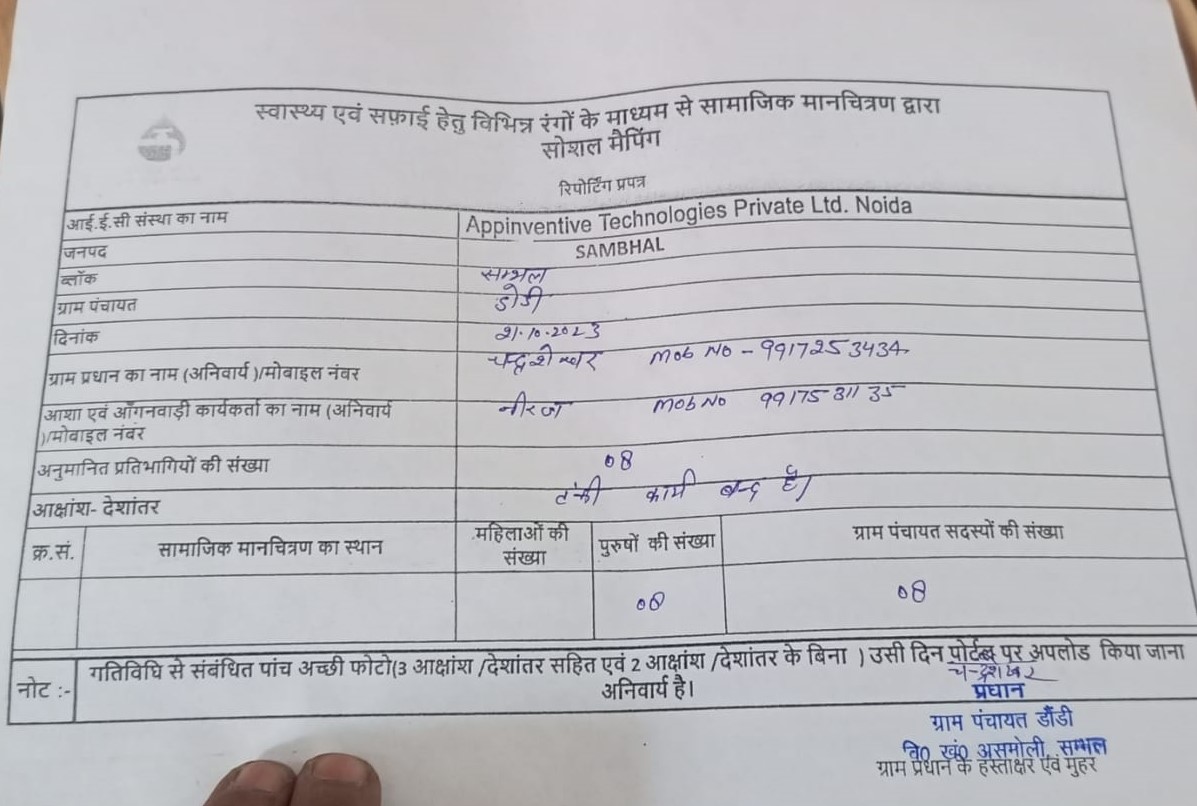 स्वास्थ्य एवं सफ़ाई हेतु विभिन्न रंगों के माध्यम से सामाजिक मानचित्रण द्वारा
सोशल मैपिंग
रिपोर्टिंग प्रपत्र
आई.ई.सी संस्था का नाम Appinventive Technologies Private Ltd. Noida
जनपद SAMBHAL
ब्लॉक सम्भल
ग्राम पंचायत डोडी
दिनांक 21.10.2023
ग्राम प्रधान का नाम (अनिवार्य )/मोबाइल नंबर चन्द्रशेखर Mob No - 9917253434
आशा एवं आँगनवाड़ी कार्यकर्ता का नाम (अनिवार्य नीरज Mob No 99175 311 35
)/मोबाइल नंबर
अनुमानित प्रतिभागियों की संख्या 08
आक्षांश- देशांतर टंकी कार्य बन्द है।
क्र.सं. सामाजिक मानचित्रण का स्थान महिलाओं की संख्या पुरुषों की संख्या ग्राम पंचायत सदस्यों की संख्या
08 08
नोट :- गतिविधि से संबंधित पांच अच्छी फोटो(3 आक्षांश /देशांतर सहित एवं 2 आक्षांश /देशांतर के बिना ) उसी दिन पोर्टल पर अपलोड किया जाना
अनिवार्य है।
चन्द्रशेखर
प्रधान
ग्राम पंचायत डौंडी
वि0 खं0 असमोली, सम्भल
ग्राम प्रधान के हस्ताक्षर एवं मुहर